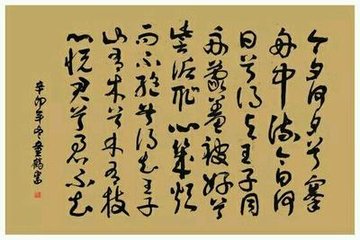 今夕何夕兮搴
舟中流今日何
日兮得与王子同
舟蒙羞被好兮
訾诟耻心几烦
而不绝兮得知王子
山有木兮木有枝
心悦君兮君不知
辛卯年冬